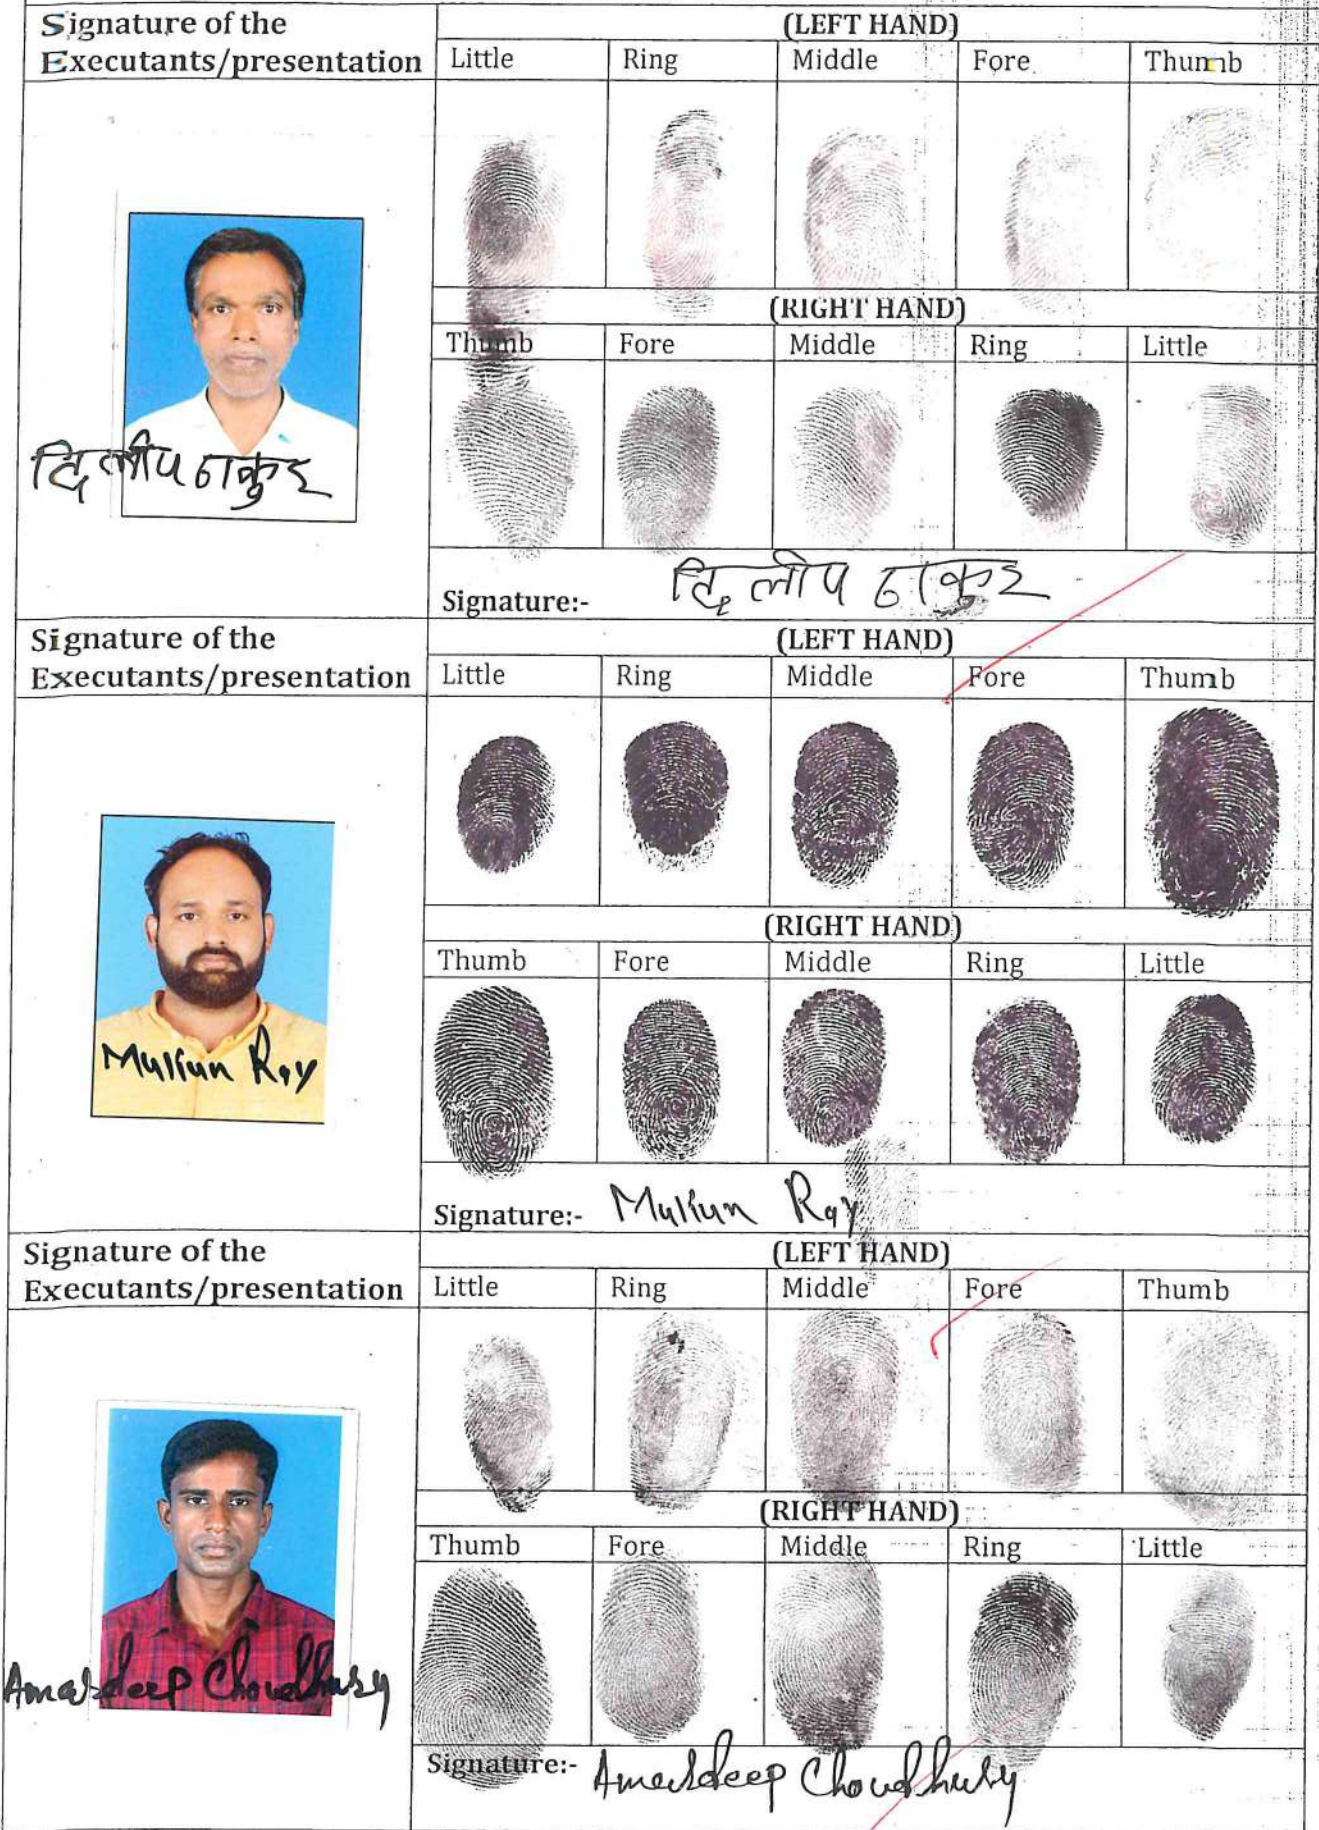 Signature of the
Executants/presentation
(LEFT HAND)
Little Ring Middle Fore Thumb
दिलीप ठाकुर
(RIGHT HAND)
Thumb Fore Middle Ring Little
Signature:- दिलीप ठाकुर
Signature of the
Executants/presentation
(LEFT HAND)
Little Ring Middle Fore Thumb
Mukun Ray
(RIGHT HAND)
Thumb Fore Middle Ring Little
Signature:- Mukun Ray
Signature of the
Executants/presentation
(LEFT HAND)
Little Ring Middle Fore Thumb
Amardeep Choudhury
(RIGHT HAND)
Thumb Fore Middle Ring Little
Signature:- Amardeep Choudhury